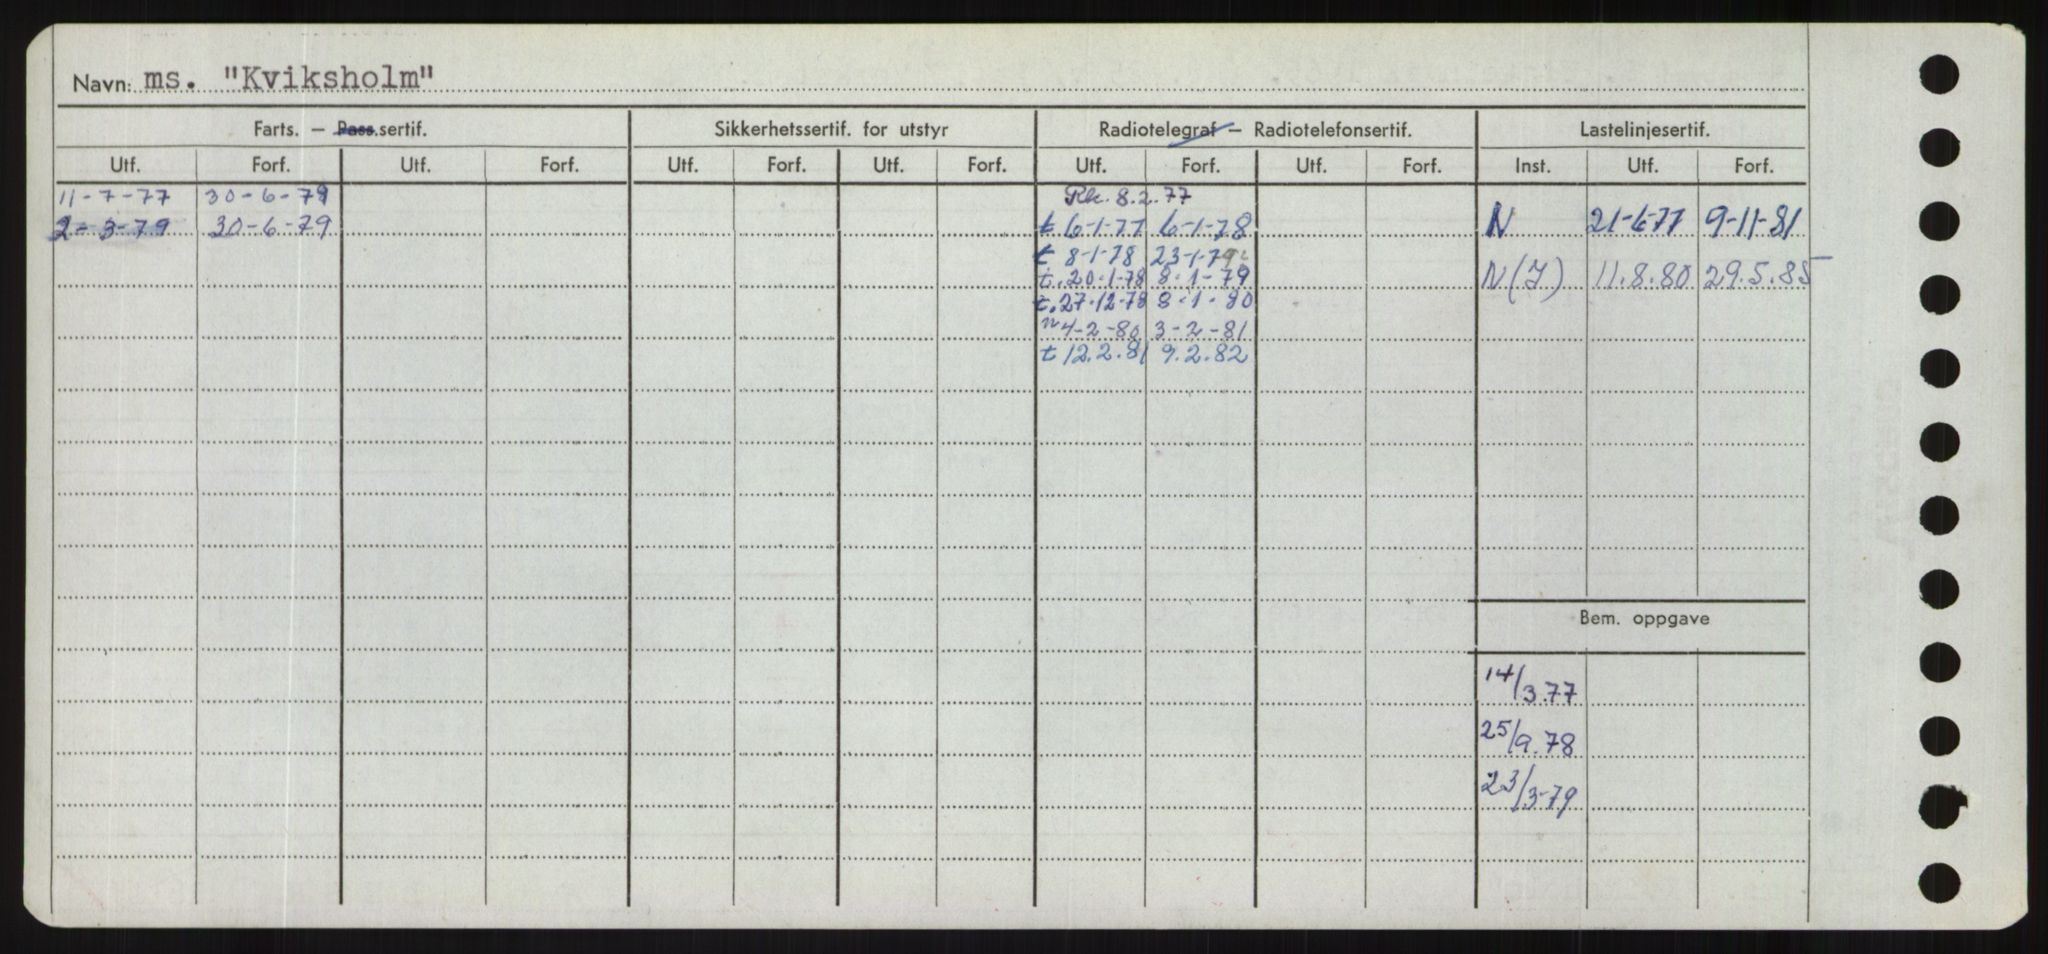 Navn: ms. "Kviksholm"
Farts. – Pass.sertif. Sikkerhetssertif. for utstyr Radiotelegraf – Radiotelefonsertif. Lastelinjesertif.
Utf. Forf. Utf. Forf. Utf. Forf. Utf. Forf. Utf. Forf. Utf. Forf. Inst. Utf. Forf.
11-7-77 30-6-79 8.2.77
2-3-79 30-6-79 t 6-1-77 6-1-78 N 21-6-77 9-11-81
t 8-1-78 23-1-79
t. 20-1-78 8-1-79 N(J) 11.8.80 29.5.85
t. 27-12-78 8-1-80
n 4-2-80 3-2-81
t 12.2.81 9.2.82
Bem. oppgave
14/3.77
25/9.78
23/3-79